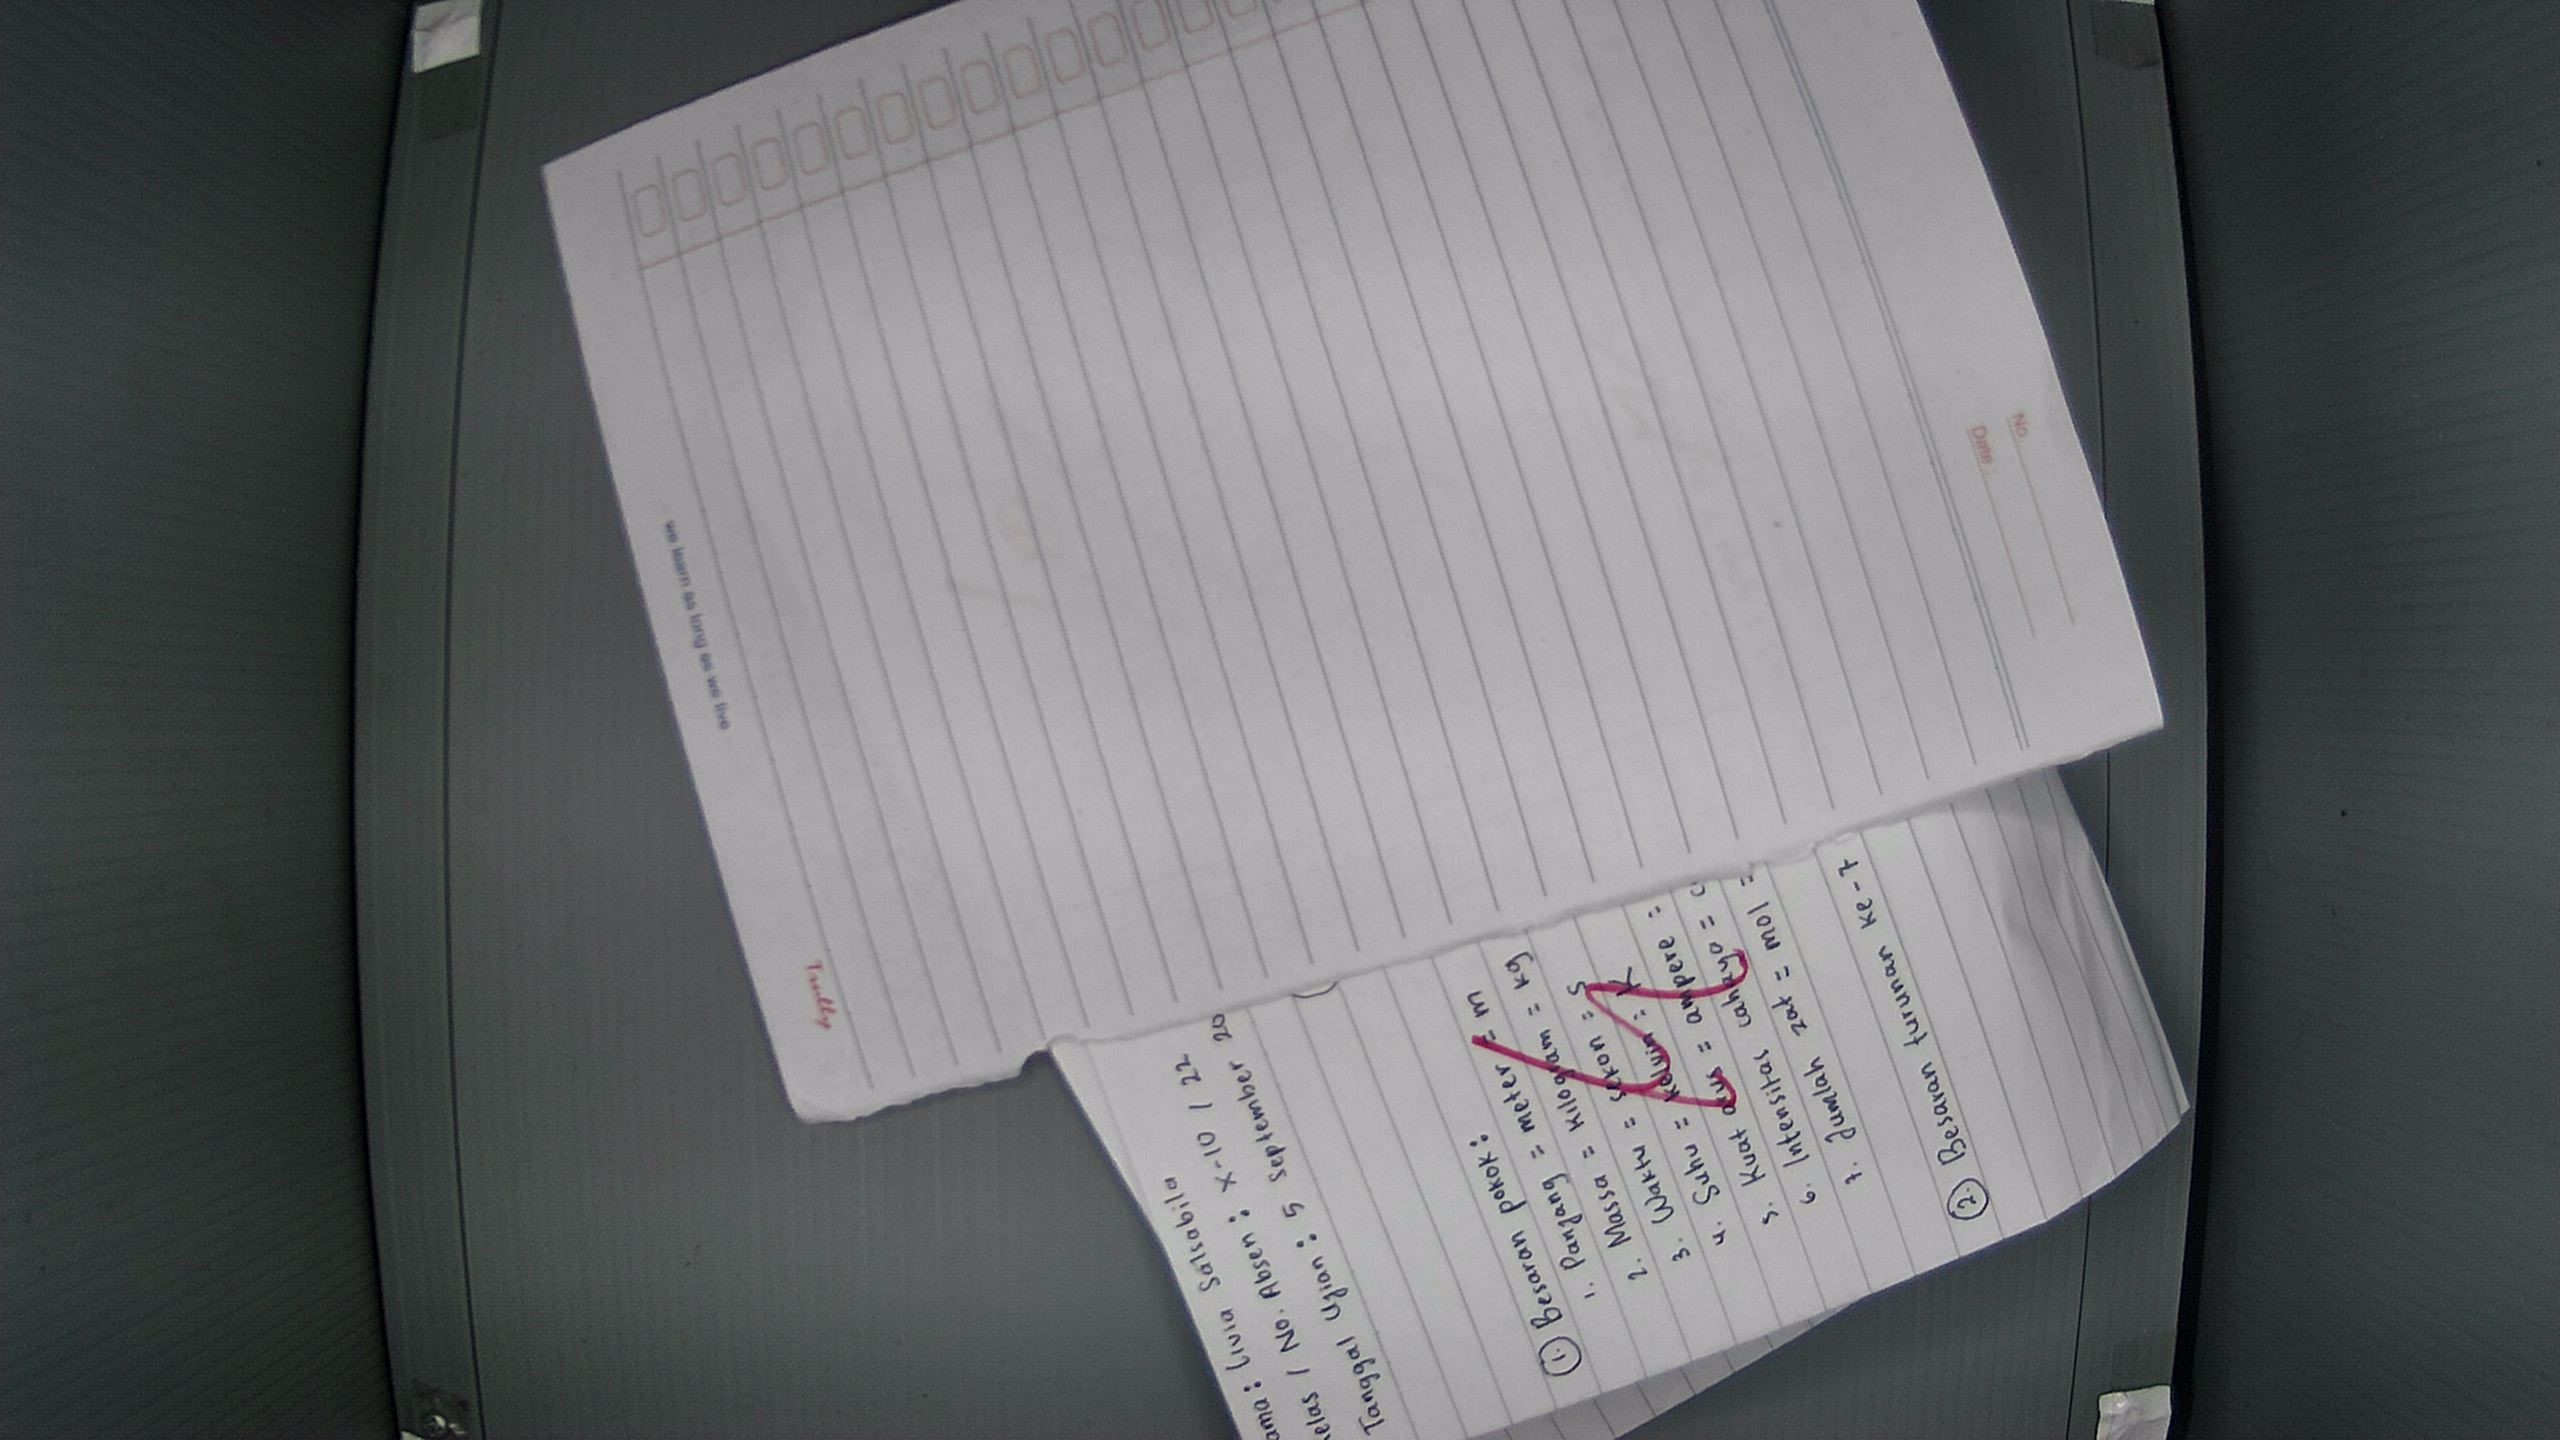 No.
Date :
we learn as long as we live
Truly
Livia Salsabila
/ No. Absen : X-10 / 22
Tanggal Ujian : 5 September 20
1. Besaran pokok :
1. Panjang = meter = m
2. Massa = kilogram = kg
3. Waktu = sekon = s
4. Suhu = kelvin = K
5. Kuat arus = ampere =
6. Intensitas cahaya =
7. Jumlah zat = mol =
2. Besaran turunan ke-7